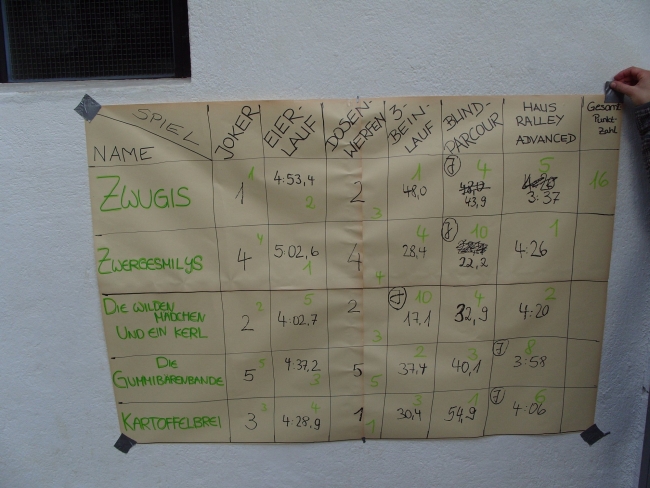 SPIEL
NAME
JOKER
EIER-
LAUF
DOSEN-
WERFEN
3-
BEIN-
LAUF
BLIND-
PARCOUR
HAUS
RALLEY
ADVANCED
Gesamt
Punkt-
Zahl
ZWUGIS
1 1
4:53,4 2
2 3
1 48,0
J 4 43,9
5 3:37
16
ZWERGESMILYS
4 4
5:02,6 1
4 4
4 28,4
J 10 22,2
1 4:26
DIE WILDEN
MÄDCHEN
UND EIN KERL
2 2
5 4:02,7
2 3
J 10 17,1
4 32,9
2 4:20
DIE
GUMMIBÄRENBANDE
5 5
4:37,2 3
5 5
2 37,4
3 40,1
J 8 3:58
KARTOFFELBREI
3 3
4 4:28,9
1 1
3 30,4
1 54,9
J 6 4:06